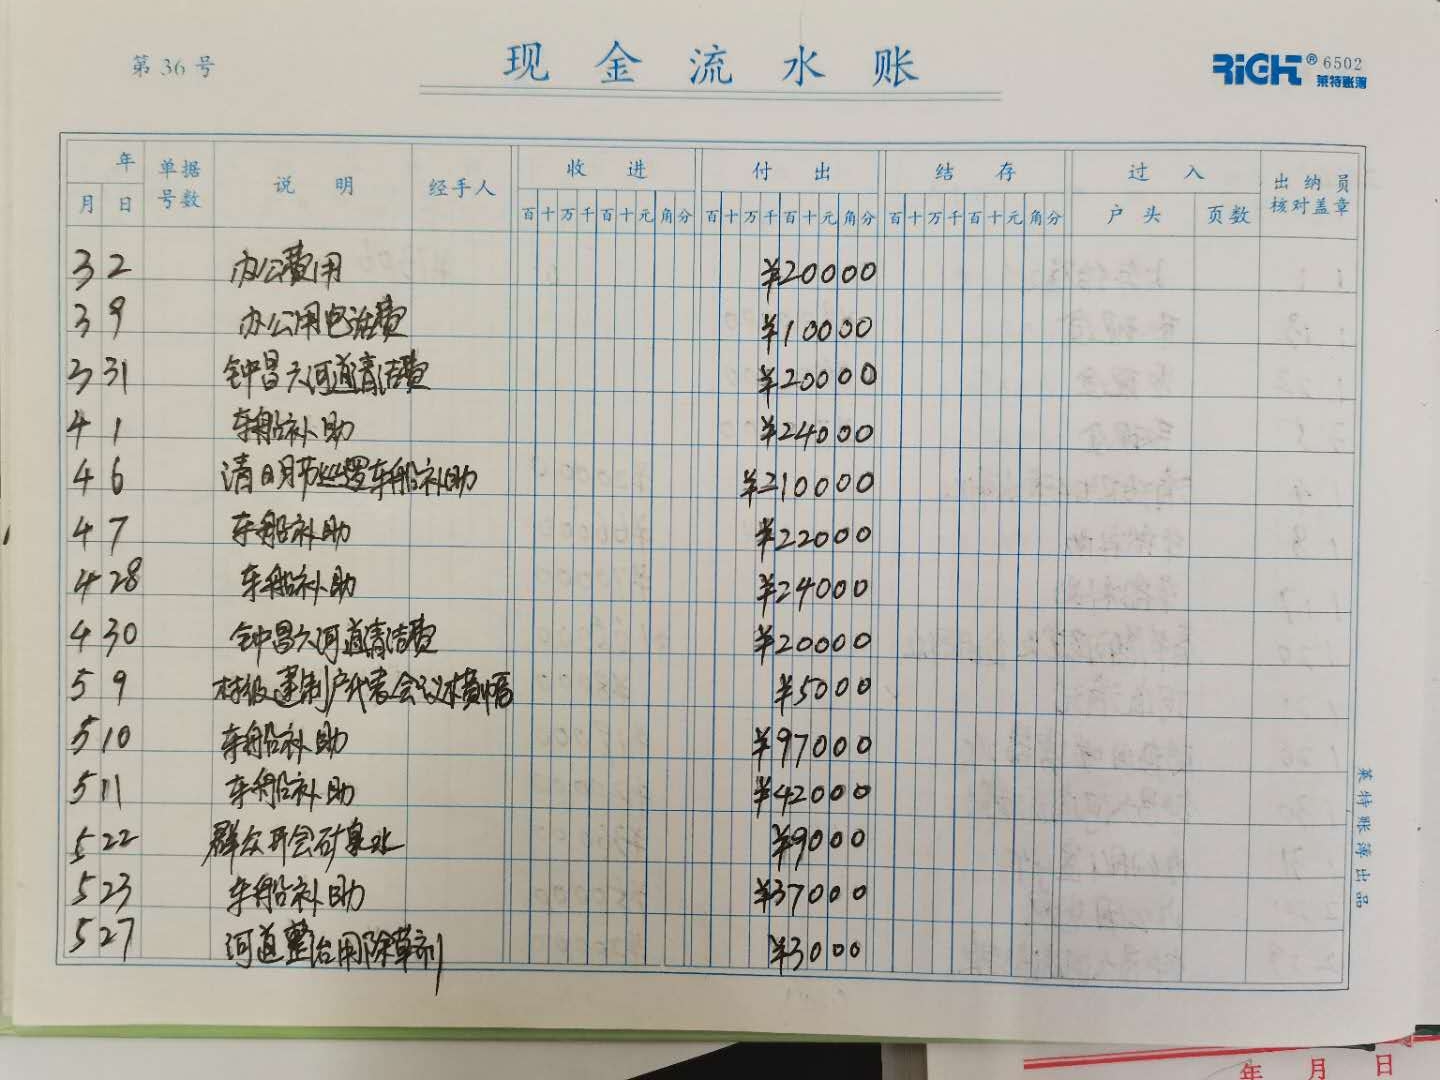 第 36 号
现金流水账
RIGHT® 6502
莱特账簿
年 单据号数 说明 经手人 收进 付出 结存 过入 出纳员核对盖章
月 日 百十万千百十元角分 百十万千百十元角分 百十万千百十元角分 户头 页数
3 2 办公费用 ¥20000
3 9 办公用电话费 ¥10000
3 31 钟昌六河道清洁费 ¥20000
4 1 车船补助 ¥24000
4 6 清明节巡逻车船补助 ¥210000
4 7 车船补助 ¥22000
4 28 车船补助 ¥24000
4 30 钟昌六河道清洁费 ¥20000
5 9 村级建制户代表会议横幅 ¥5000
5 10 车船补助 ¥97000
5 11 车船补助 ¥42000
5 22 群众开会矿泉水 ¥9000
5 23 车船补助 ¥37000
5 27 河道整治用除草剂 ¥3000
莱特账簿出品
年 月 日